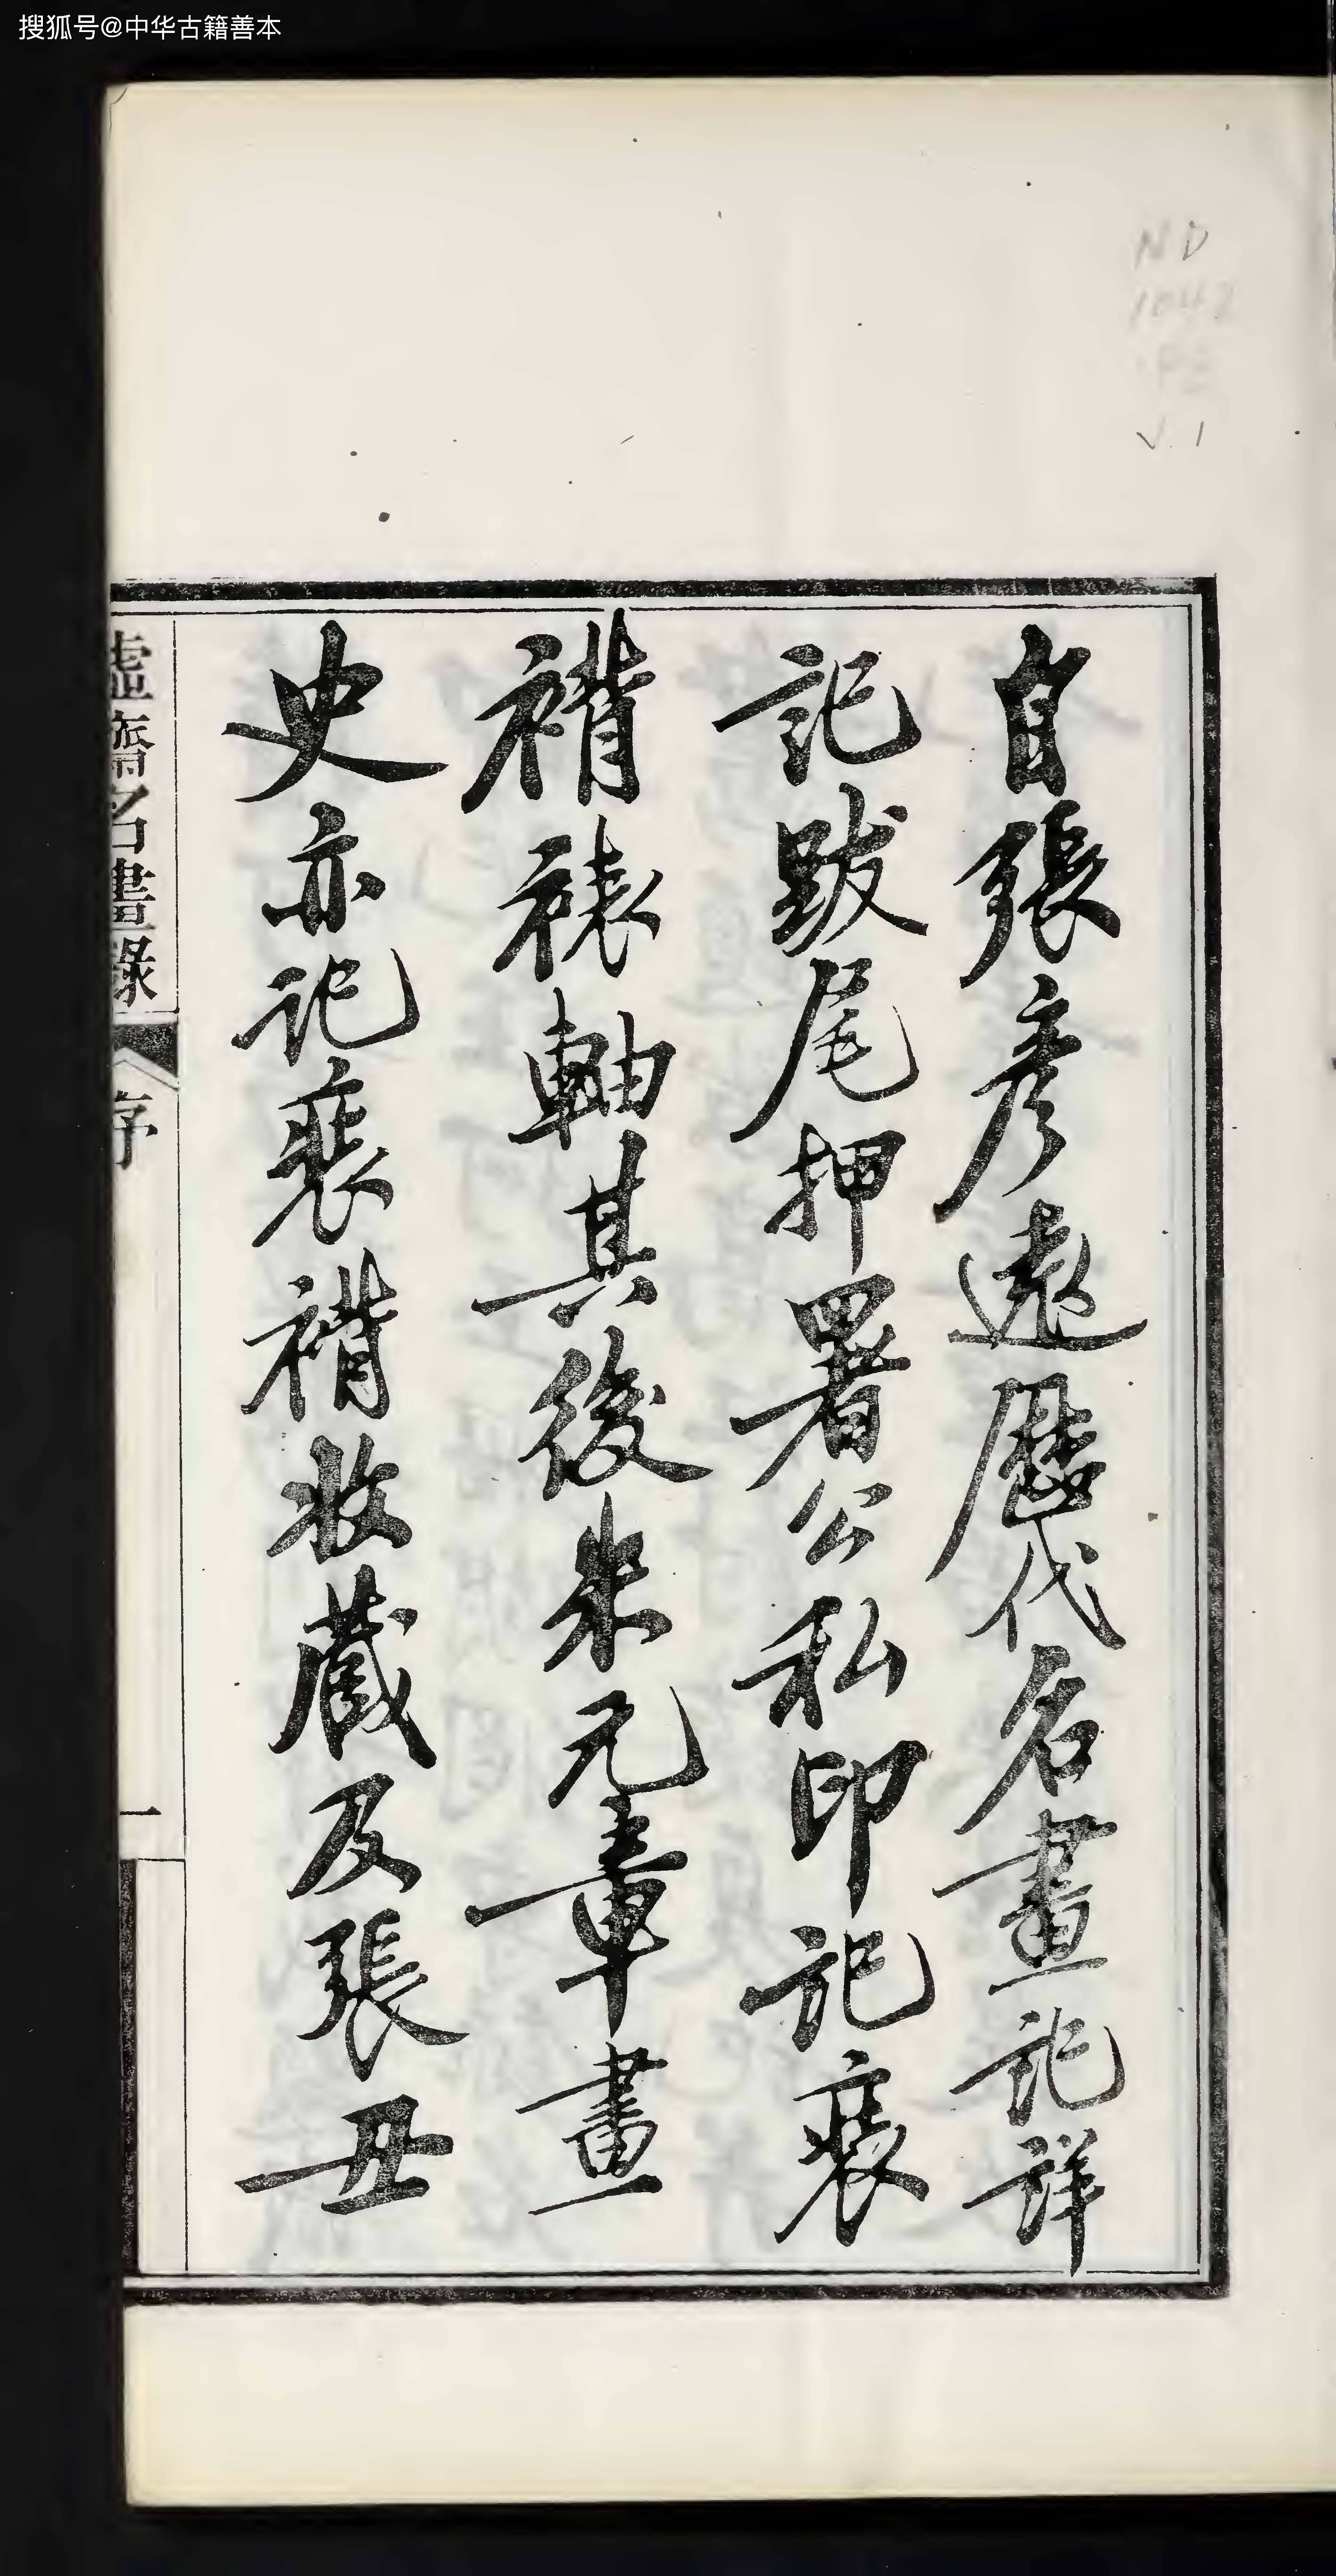 搜狐号@中华古籍善本
ND
1042
V.1
自張彥遠歷代名畫記詳
記跋尾押署公私印記裝
褙裱軸其後米元章畫
史亦記裝褙收藏及張丑
虛齋名畫錄
序
一